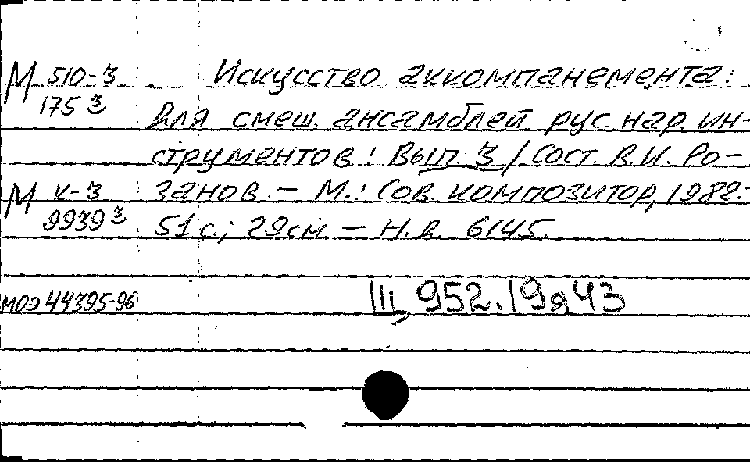 М 510-3 Искусство аккомпанемента:
175 3 Для смеш. ансамблей рус. нар. ин-
струментов: Вып 3 / Сост В.И. Ро-
М к-3 занов. – М.: Сов. композитор, 1982.
9939 3 51 с.; 29см – Н.д. 6145.
МОЭ 44395-96 Щ 952.19я43